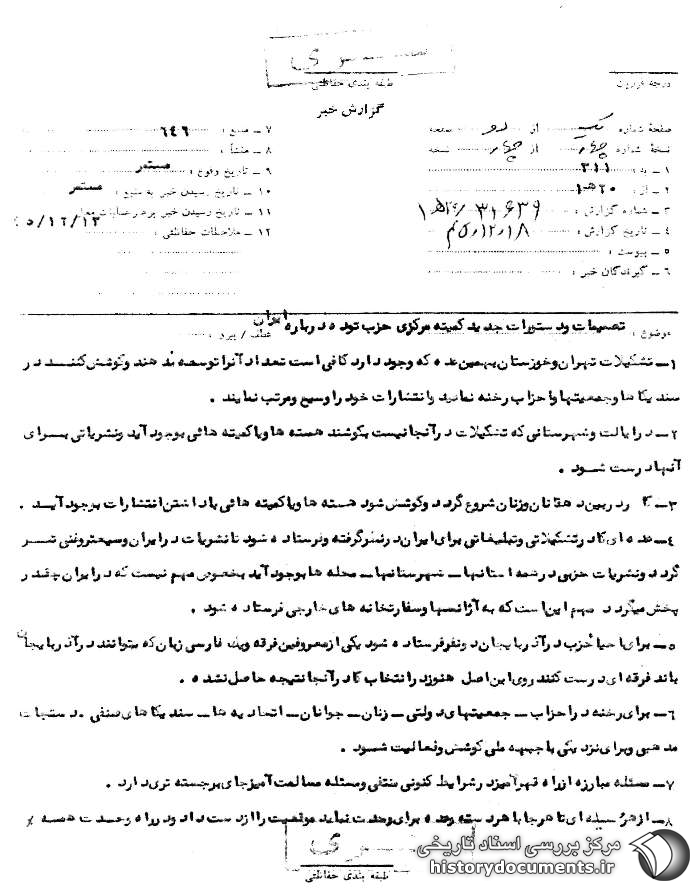 ســری
طبقه بندی حفاظتی
درجهٔ فوریت
گزارش خبر
صفحهٔ شماره یک از دو صفحه
نسخهٔ شماره چهار از چهار نسخه
۱ ـ به : ۳۱۱
۲ ـ از : ۲۰ هـ ۱
۳ ـ شماره گزارش :
۴ ـ تاریخ گزارش :
۵ ـ پیوست :
۶ ـ گیرندگان خبر :
۷ ـ منبع : ۶۴۶
۸ ـ منشأ :
۹ ـ تاریخ وقوع : مستمر
۱۰ ـ تاریخ رسیدن خبر به منبع : مستمر
۱۱ ـ تاریخ رسیدن خبر به رهبر عملیات
۱۲ ـ ملاحظات حفاظتی :
موضوع : تصمیمات و دستورات جدید کمیته مرکزی حزب توده درباره ایران
عطف / پیرو :
۱ـ تشکیلات تهران و خوزستان بهمین عده که وجود دارد کافی است تعداد آنرا توسعه ندهند و کوشش کننـد در
سندیکاها و جمعیتها و احزاب رخنه نمایند و انتشارات خود را وسیع و مرتب نمایند .
۲ـ در ایالت و شهرستانی که تشکیلات در آنجا نیست بکوشند هسته ها و یا کمیته هائی بوجود آید و نشریاتی بـرای
آنها درست شـود .
۳ـ کادر بین دهقانان و زنان شروع گردد و کوشش شود هسته ها و یا کمیته هائی با داشتن انتشارات بوجود آیـد .
۴ـ عده ای کادر تشکیلاتی و تبلیغاتی برای ایران در نظر گرفته و فرستاده شود تا نشریات در ایران وسیعتر و غنی تـر
گردد و نشریات حزبی در همه استانها ـ شهرستانها ـ محله ها بوجود آید بخصوص مهم نیست که در ایران چقدر
پخش میگردد مهم این است که به آژانسها و سفارتخانه های خارجی فرستاده شود .
۵ـ برای احیا حزب در آذربایجان دو نفر فرستاده شود یکی از معروفین فرقه و یک فارسی زبان که بتوانند در آذربایجان
باند فرقه ای درست کنند روی این اصل هنوز در انتخاب کادر آنجا نتیجه حاصل نشده .
۶ـ برای رخنه در احزاب ـ جمعیتهای دولتی ـ زنان ـ جوانان ـ اتحادیه ها ـ سندیکاهای صنفی ـ دستجات
مذهبی و برای نزدیکی با جبهه ملی کوشش و فعالیت شـود .
۷ـ مسئله مبارزه از راه قهرآمیز در شرایط کنونی منتفی و مسئله مسالمت آمیز جای برجسته تری دارد .
۸ـ از هر وسیله ای تا هر جا با هر دسته وعده برای وحدت نباید موقعیت را از دست داد و در راه وحـدت همـه
ســری
طبقه بندی حفاظتی
مرکز بررسی اسناد تاریخی
historydocuments.ir